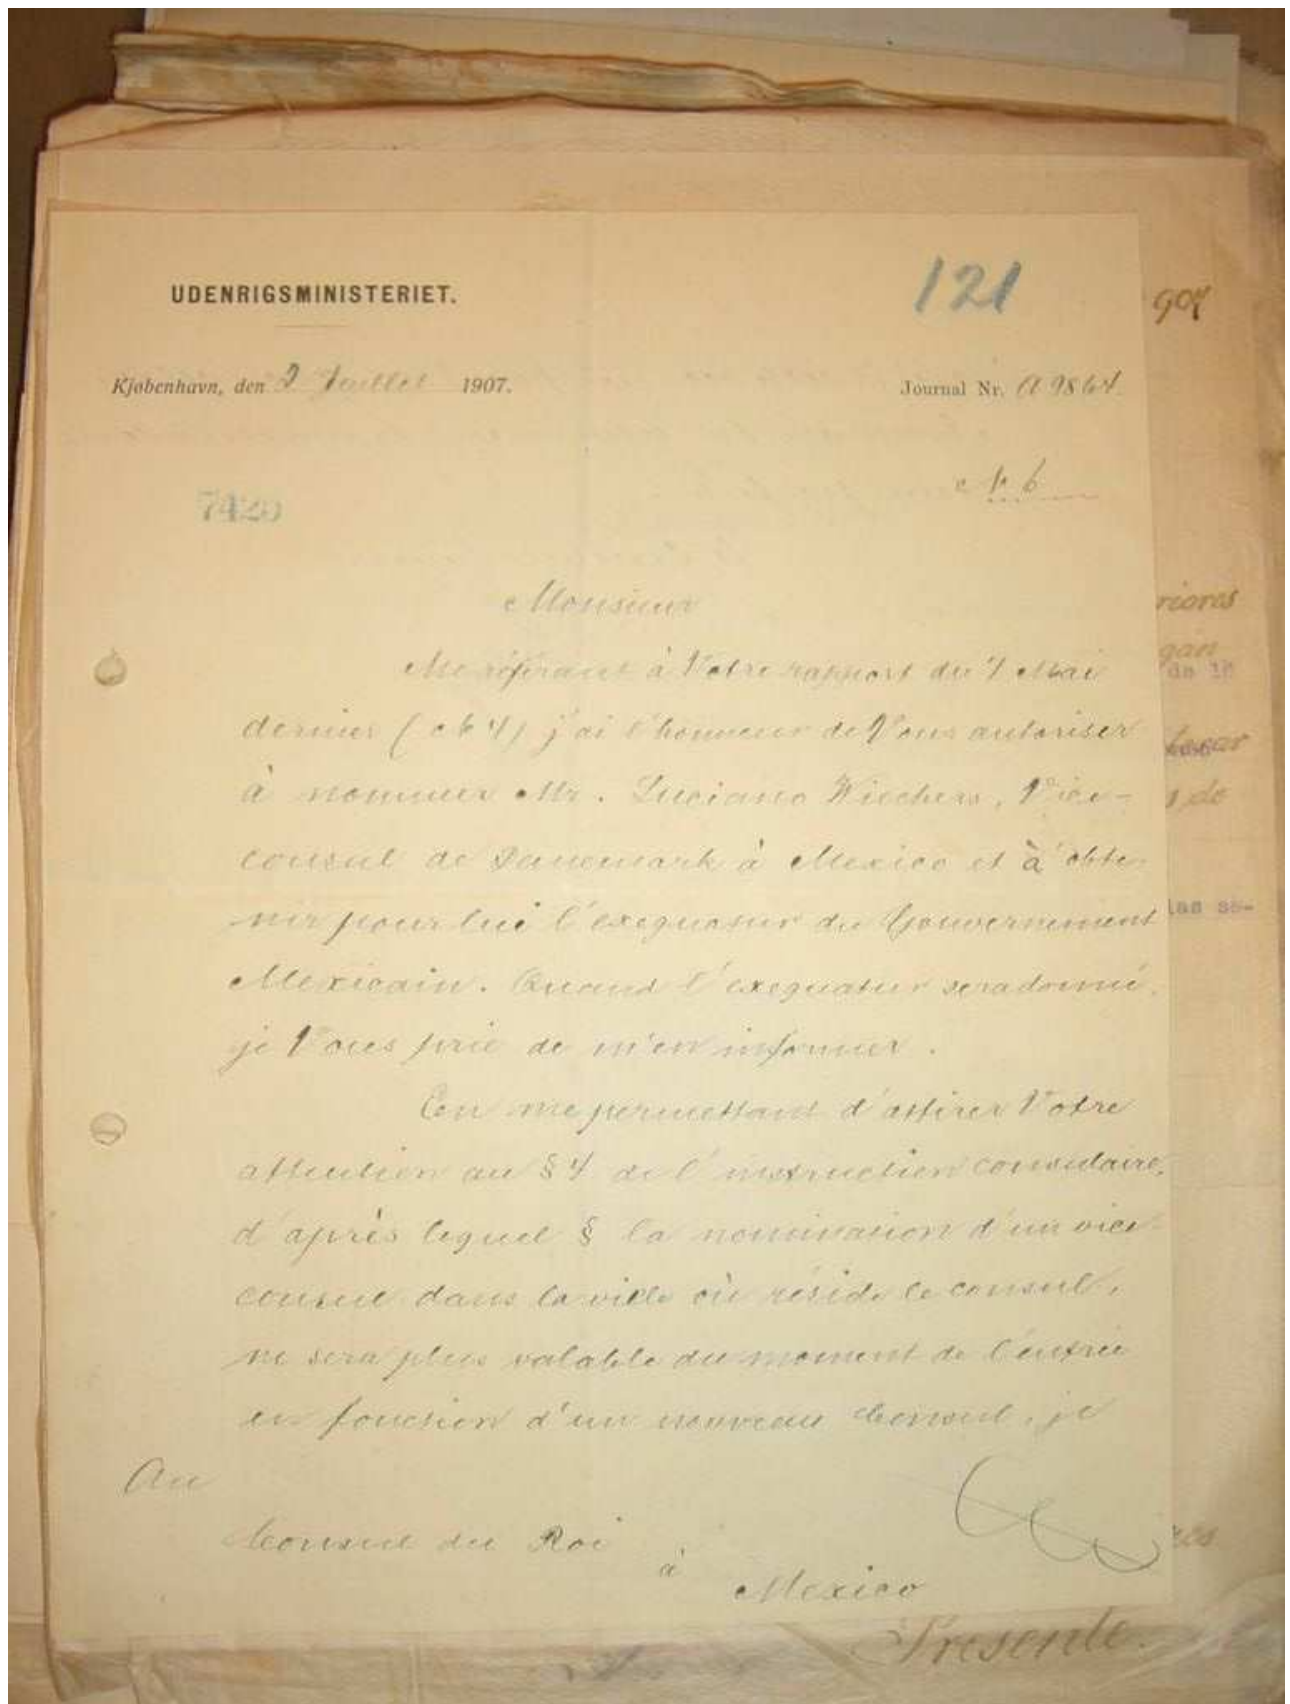 121
907
UDENRIGSMINISTERIET.
Kjøbenhavn, den 2 Juillet 1907.
Journal Nr. A 9864.
№ 6
7420
Monsieur
Me référant à Votre rapport du 7 Mai
dernier (№ 4) j'ai l'honneur de Vous autoriser
à nommer Mr. Luciano Wiechers, Vice-
consul de Danemark à Mexico et à obte-
nir pour lui l'exequatur du Gouvernement
Mexicain. Quand l'exequatur sera donné,
je Vous prie de m'en informer.
En me permettant d'attirer Votre
attention au § 4 de l'instruction consulaire,
d'après lequel § la nomination d'un vice
consul dans la ville où réside le consul,
ne sera plus valable du moment de l'entrée
en fonction d'un nouveau Consul, je
Au
Consul du Roi
à
Mexico
riores
de 18
s de
las se-
res
Presente.